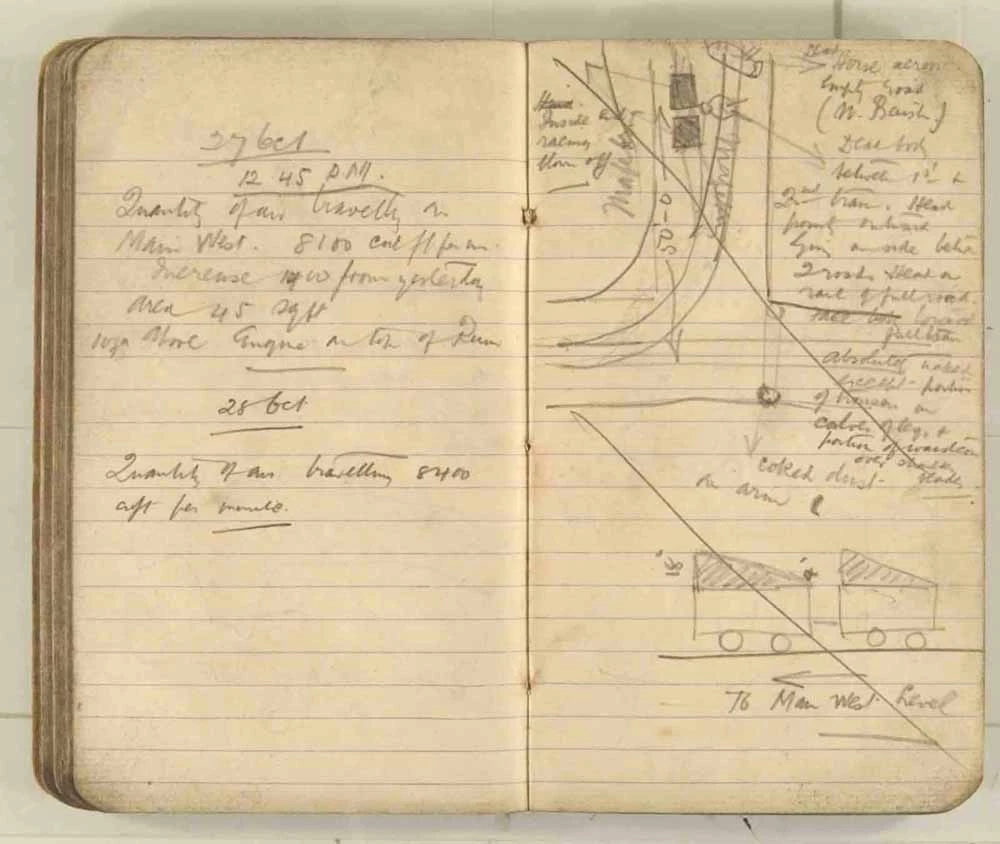 27 Oct
12 45 P.M.
Quantity of air travellg on
Main West. 8100 cub ft per m.
Increase from yesterday
area 45 sq ft
above Engine on top of
28 Oct
Quantity of air travelling 8400
cuft per minute.
Inside
blown off
50-0
Dead
Horse across
Empty road
Dead body
between 1st &
2nd tram. Head
points outwards
on side betwn
2 roads Head on
rail of full road.
toward
full tram
absolutely naked
except portion
of trouser on
calves of legs &
portion of
over
coked dust
on arm
18"
To Main West Level